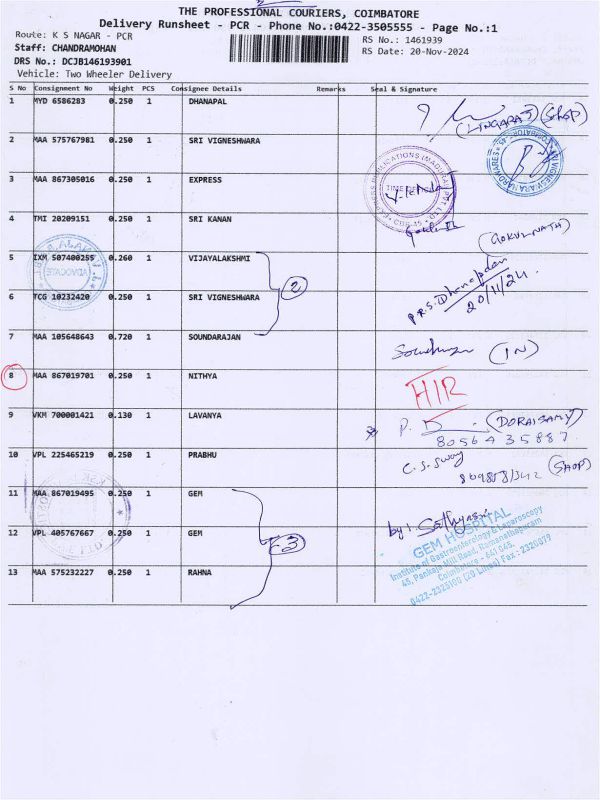 THE PROFESSIONAL COURIERS, COIMBATORE
Delivery Runsheet - PCR - Phone No.:0422-3505555 - Page No.:1
Route: K S NAGAR - PCR
RS No.: 1461939
Staff: CHANDRAMOHAN
RS Date: 20-Nov-2024
DRS No.: DCJB146193901
Vehicle: Two Wheeler Delivery
S No Consignment No Weight PCS Consignee Details Remarks Seal & Signature
1 MYD 6586283 0.250 1 DHANAPAL
(LINGARAJ) (SHOP)
2 MAA 575767981 0.250 1 SRI VIGNESHWARA
3 MAA 867305016 0.250 1 EXPRESS
4 TMI 20209151 0.250 1 SRI KANAN
(GOKULNATH)
5 IXM 507400255 0.260 1 VIJAYALAKSHMI
ADVOCATE
2
6 TCG 10232420 0.250 1 SRI VIGNESHWARA
P.R.S. Dhanapdan
20/11/24
7 MAA 105648643 0.720 1 SOUNDARAJAN
(IN)
8 MAA 867019701 0.250 1 NITHYA
HIR
9 VKM 700001421 0.130 1 LAVANYA
P. (DORAISAMY)
8056435887
10 VPL 225465219 0.250 1 PRABHU
C.S. (SHOP)
11 MAA 867019495 0.250 1 GEM
by
12 VPL 405767667 0.250 1 GEM
3
13 MAA 575232227 0.250 1 RAHNA
GEM HOSPITAL
Institute of Gastroenterology & Laparoscopy
45, Pankaja Mill Road, Ramanathapuram
Coimbatore - 641 045.
0422-2325100 (20 Lines) Fax : 2320879